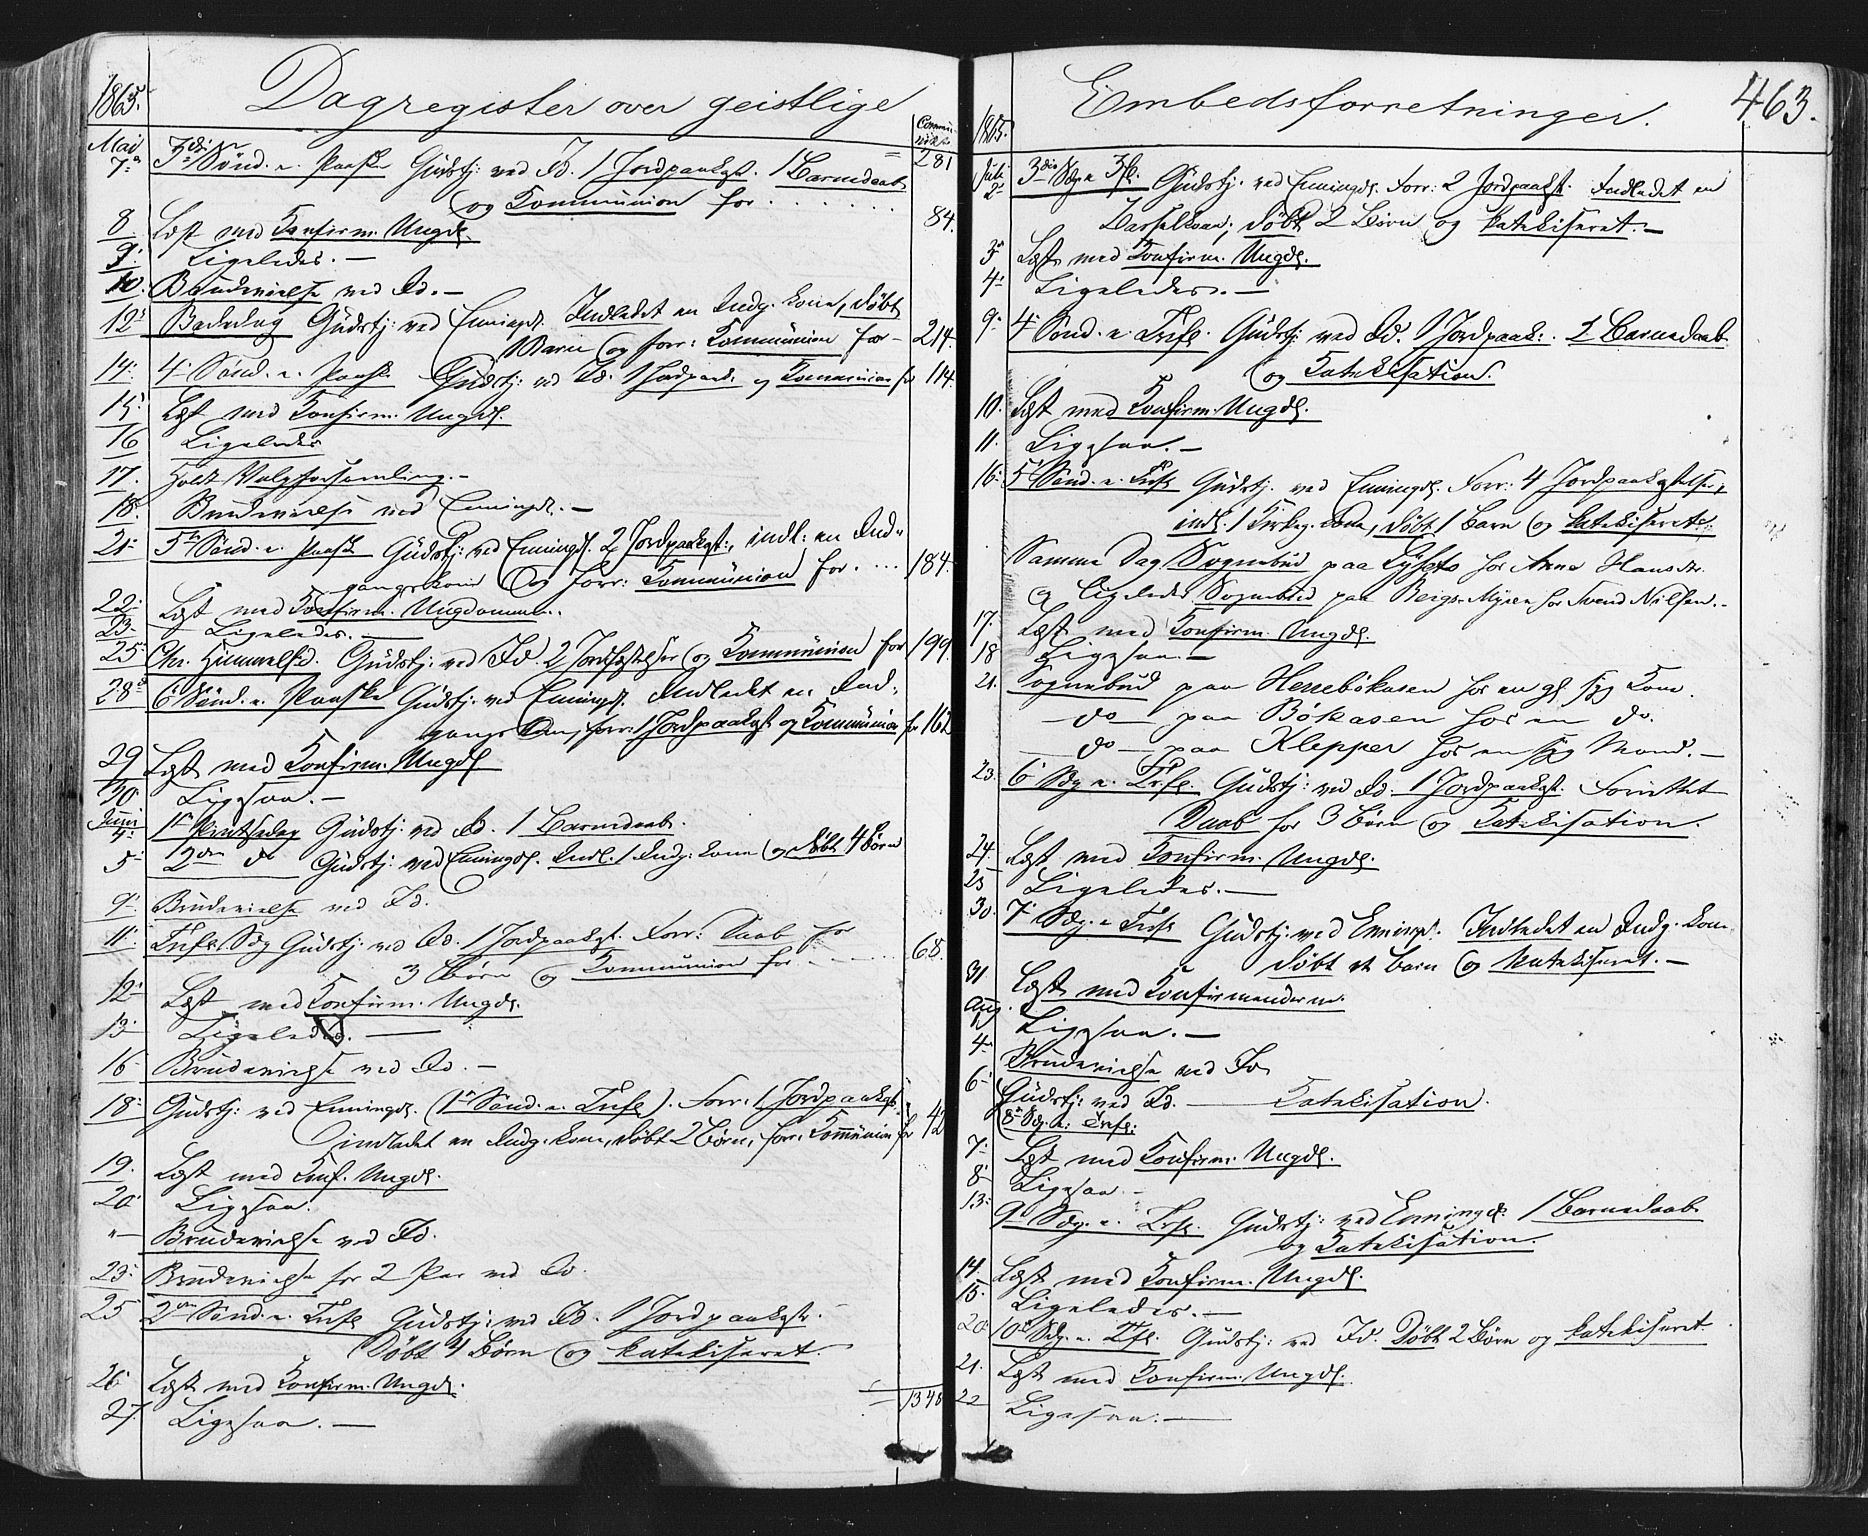 1865. Dagregister over geistlige
Commu-
nikt.
Mai
7de 3die Sönd. e. Paaske Gudstj: ved Id. 1 Jordpaakgt. 1 Barnedaab = 281
og Kommunion for . . . . . . 84.
8. Læst med Konfirm. Ungd.
9. Ligeledes. —
10. Brudevielse ved Id. —
12. Bededag Gudstj: ved Enningd. Indledet en Indg. kone, døbt
1 Barn og forr: Kommunion for — 214.
14. 4. Sönd. e. Paaske Gudstj: ved Id. 1 Jordpaak. og Kommunion for 114.
15. Læst med Konfirm. Ungd.
16 Ligeledes
17. Holdt Valgforsamling. —
18. Brudevielse ved Enningd. —
21. 5te Sönd. e. Paaske Gudstj: ved Enningd. 2 Jordpaakgt:, indl: en Ind-
gangskone og Forr: Kommunion for . . . 184.
22. Læst med Konfirm. Ungdommen.
23. Ligeledes. —
25 Chr. Himmelf.d. Gudstj: ved Id. 2 Jordfæstelser og Kommunion for 199.
28de 6te Sönd. e. Paaske Gudstj: ved Enningd. Indledet en Ind-
gangs Kone, forr: 1 Jordpaakgt og Kommunion for 162
29 Læst med Konfirm. Ungd.
30 Ligesaa. —
Juni
4. 1ste Pintsedag Gudstj: ved Id. 1 Barnedaab.
5 2den do Gudstj: ved Enningd. Indl. 1 Indg. kone og døbt 4 Börn
9. Brudevielse ved Id.
11. Trefr. Sdg Gudstj: ved Id. 1 Jordpaakgt. Forr: Daab for
3 Börn og Kommunion for . . . . 68.
12. Læst med Konfirm. Ungd.
13. Ligeledes. —
16 Brudevielse ved Id. —
18. Gudstj: ved Enningd. (1ste Sönd. e. Trefr.). Forr. 1 Jordpaakgt.,
indledet en Indg. kone, døbt 2 Börn, forr. Kommunion for 42
19. Læst med Konf. Ungd.
20 Ligesaa.
" Brudevielse ved Id.
23. Brudevielse for 2 Par ved Id.
25 2den Sönd. e. Trefr. Gudstj: ved Id. 1 Jordpaakgt.
Døbt 4 Börn og katekiseret.
26 Læst med Konfirm. Ungd. 1348
27. Ligesaa. —
Embedsforretninger. 463.
1865.
Juli
2. 3die Sdg e. Trf. Gudstj. ved Enningd. Forr: 2 Jordpaakgt. Indledet en
Barselkone; døbt 2 Börn og katekiseret. —
3 Læst med Konfirm. Ungd.
4. Ligeledes. —
9. 4. Sönd. e. Trefr. Gudstj: ved Id. 1 Jordpaak: 2 Barnedaab
og Katekisation.
10. Læst med Konfirm. Ungd.
11. Ligesaa. —
16. 5te Sönd. e. Trefr Gudstj. ved Enningd. Forr: 4 Jordpaakgtelser,
indl. 1 Kirkeg. kone, døbt 1 Barn og katekiseret.
Samme Dag Sognebud paa for Anne Hansdr.
og Ligeledes Sognebud paa Bergs-Myren for Svend Nilsen. —
17. Læst med Konfirm. Ungd.
18 Ligesaa. —
21. Sognebud paa Herrebökasen for en gl. syg Kone.
— do — paa Bökasen for en do.
— do — paa Klepper for en syg Mand. —
23. 6te Sdg e. Trefr. Gudstj: ved Id. 1 Jordpaakgt. Forrettet
Daab for 3 Börn og Katekisation.
24. Læst med Konfirm. Ungd.
25 Ligeledes. —
30. 7. Sdg. e Trefr Gudstj: ved Enningd. Indledet en Indg. kone
døbt et barn og katekiseret. —
31 Læst med Konfirmanderne.
Aug.
1. Ligesaa. —
4. Brudevielse ved Id
6. Gudstj: ved Id. — Katekisation.
(8de Sdg. e. Trefr.
7. Læst med Konfirm. Ungd.
8. Ligesaa. —
13. 9de Sdg. e. Trefr. Gudstj: ved Enningd. 1 Barnedaab
og Katekisation.
14. Læst med Konfirm. Ungd.
15. Ligeledes. —
20. 10de Sdg. e. Trefr. Gudstj: ved Id. Døbt 2 Börn og katekiseret
21. Læst med Konfirm. Ungd.
22 Ligesaa. —